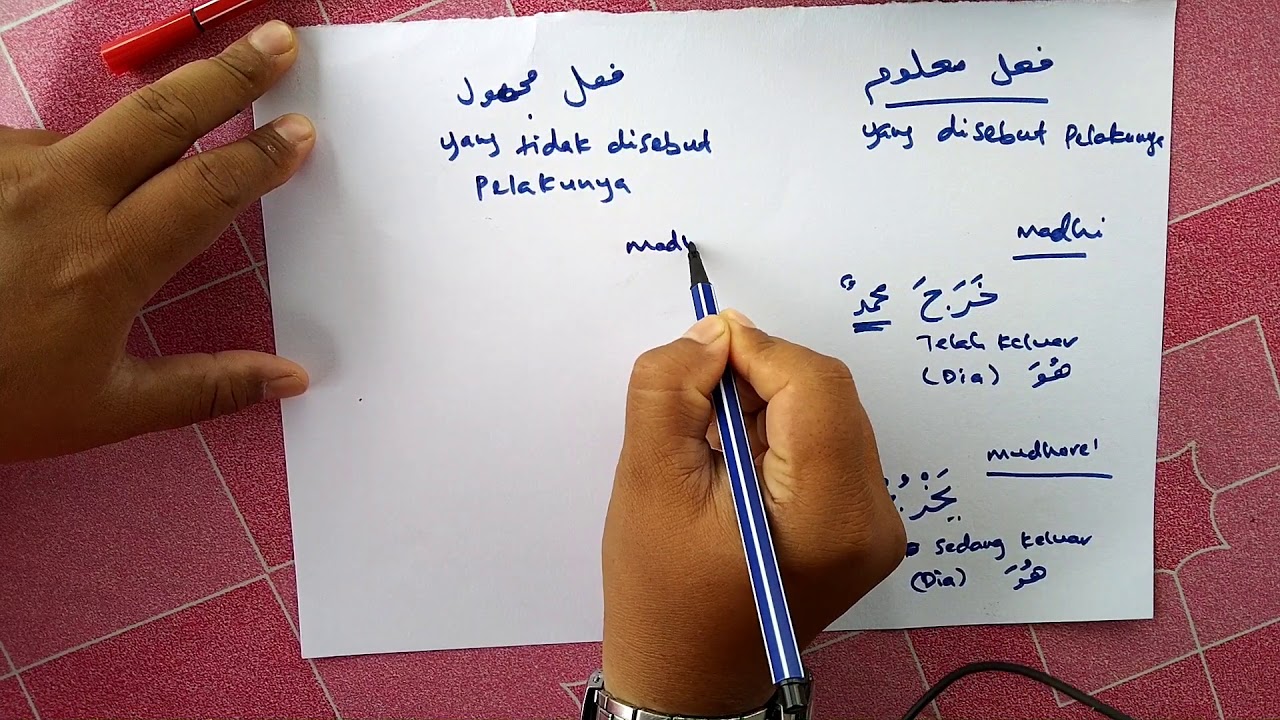 فعل معلوم
yang disebut Pelakunya
madhi
خَرَجَ محمدٌ
Telah keluar
(Dia) هُوَ
mudhore'
يَخْرُجُ
sedang keluar
(Dia) هُوَ
فعل مجهول
yang tidak disebut
Pelakunya
madh